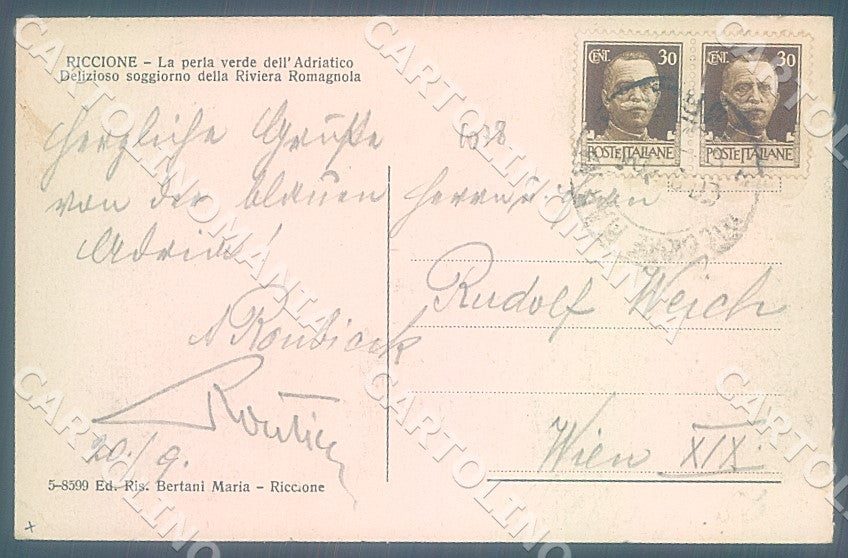 RICCIONE – La perla verde dell'Adriatico
Delizioso soggiorno della Riviera Romagnola
Herzliche Grüße
von der blauen
Adria!
20./9.
5-8599 Ed. Ris. Bertani Maria – Riccione
CENT. 30
POSTE ITALIANE
CENT. 30
POSTE ITALIANE
Rudolf Weich
Wien XIX
CARTOLINOMANIA